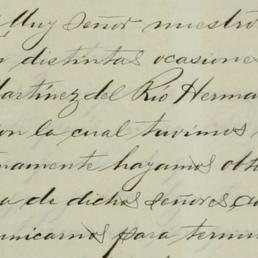 Muy Señor nuestro
n distintas ocasione
Martínez del Río Herma
on la cual tuvimos
namente hayamos obt
a de dichos señores, a
unicarnos para termi